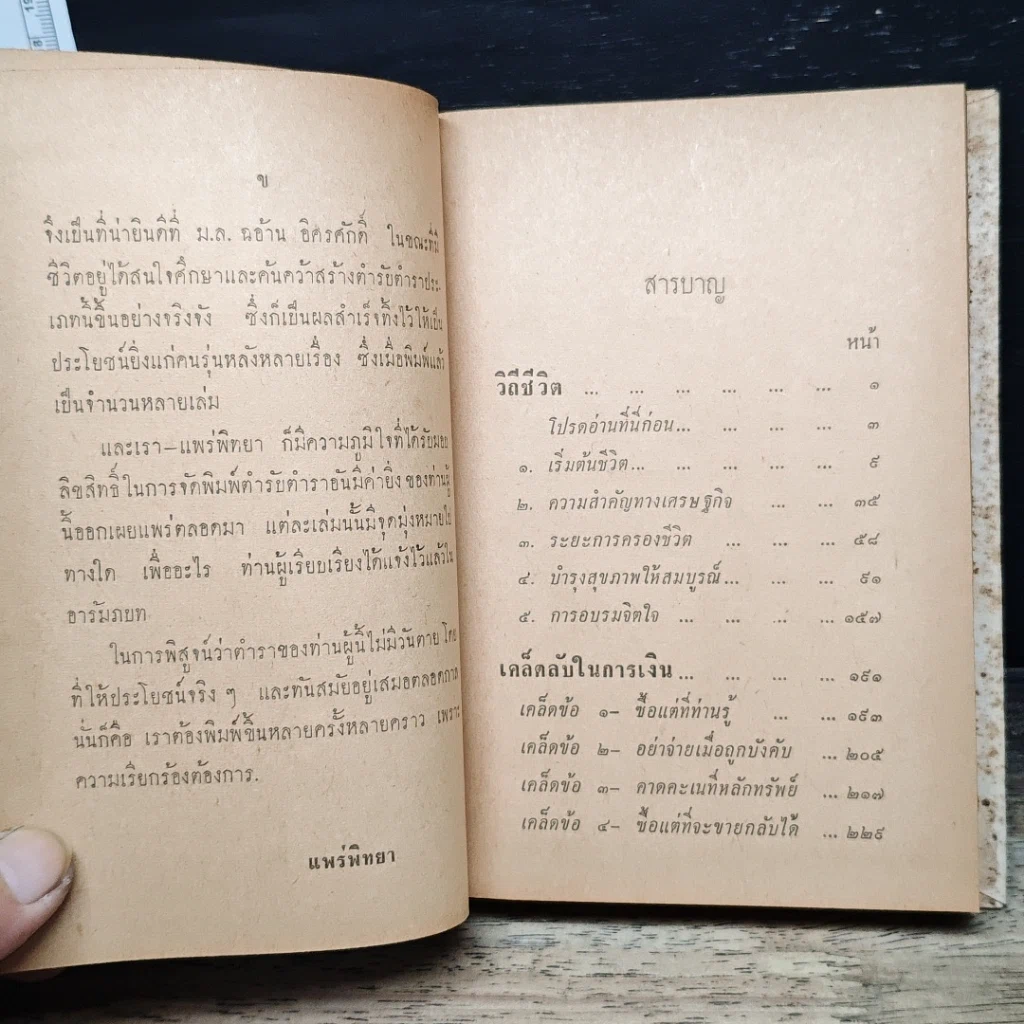 ข
จึงเป็นที่น่ายินดีที่ ม.ล. ฉอ้าน อิศรศักดิ์ ในขณะที่มี
ชีวิตอยู่ได้สนใจศึกษาและค้นคว้าสร้างตำรับตำราประ-
เภทนี้ขึ้นอย่างจริงจัง ซึ่งก็เป็นผลสำเร็จทิ้งไว้ให้เป็น
ประโยชน์ยิ่งแก่คนรุ่นหลังหลายเรื่อง ซึ่งเมื่อพิมพ์แล้ว
เป็นจำนวนหลายเล่ม
และเรา—แพร่พิทยา ก็มีความภูมิใจที่ได้รับมอบ
ลิขสิทธิ์ในการจัดพิมพ์ตำรับตำราอันมีค่ายิ่งของท่านผู้
นี้ออกเผยแพร่ตลอดมา แต่ละเล่มนั้นมีจุดมุ่งหมายไป
ทางใด เพื่ออะไร ท่านผู้เรียบเรียงได้แจ้งไว้แล้วใน
อารัมภบท
ในการพิสูจน์ว่าตำราของท่านผู้นี้ไม่มีวันตาย โดย
ที่ให้ประโยชน์จริง ๆ และทันสมัยอยู่เสมอตลอดกาล
นั่นก็คือ เราต้องพิมพ์ขึ้นหลายครั้งหลายคราว เพราะ
ความเรียกร้องต้องการ.
แพร่พิทยา
สารบาญ
หน้า
วิถีชีวิต ... ... ... ... ... ... ๑
โปรดอ่านที่นี่ก่อน... ... ... ... ๓
๑. เริ่มต้นชีวิต... ... ... ... ... ๙
๒. ความสำคัญทางเศรษฐกิจ ... ... ๓๕
๓. ระยะการครองชีวิต ... ... ... ๕๘
๔. บำรุงสุขภาพให้สมบูรณ์... ... ... ๙๑
๕. การอบรมจิตใจ ... ... ... ... ๑๕๗
เคล็ดลับในการเงิน... ... ... ... ๑๙๑
เคล็ดข้อ ๑— ซื้อแต่ที่ท่านรู้ ... ... ๑๙๓
เคล็ดข้อ ๒— อย่าจ่ายเมื่อถูกบังคับ ... ๒๐๕
เคล็ดข้อ ๓— คาดคะเนที่หลักทรัพย์ ... ๒๑๗
เคล็ดข้อ ๔— ซื้อแต่ที่จะขายกลับได้ ... ๒๒๙